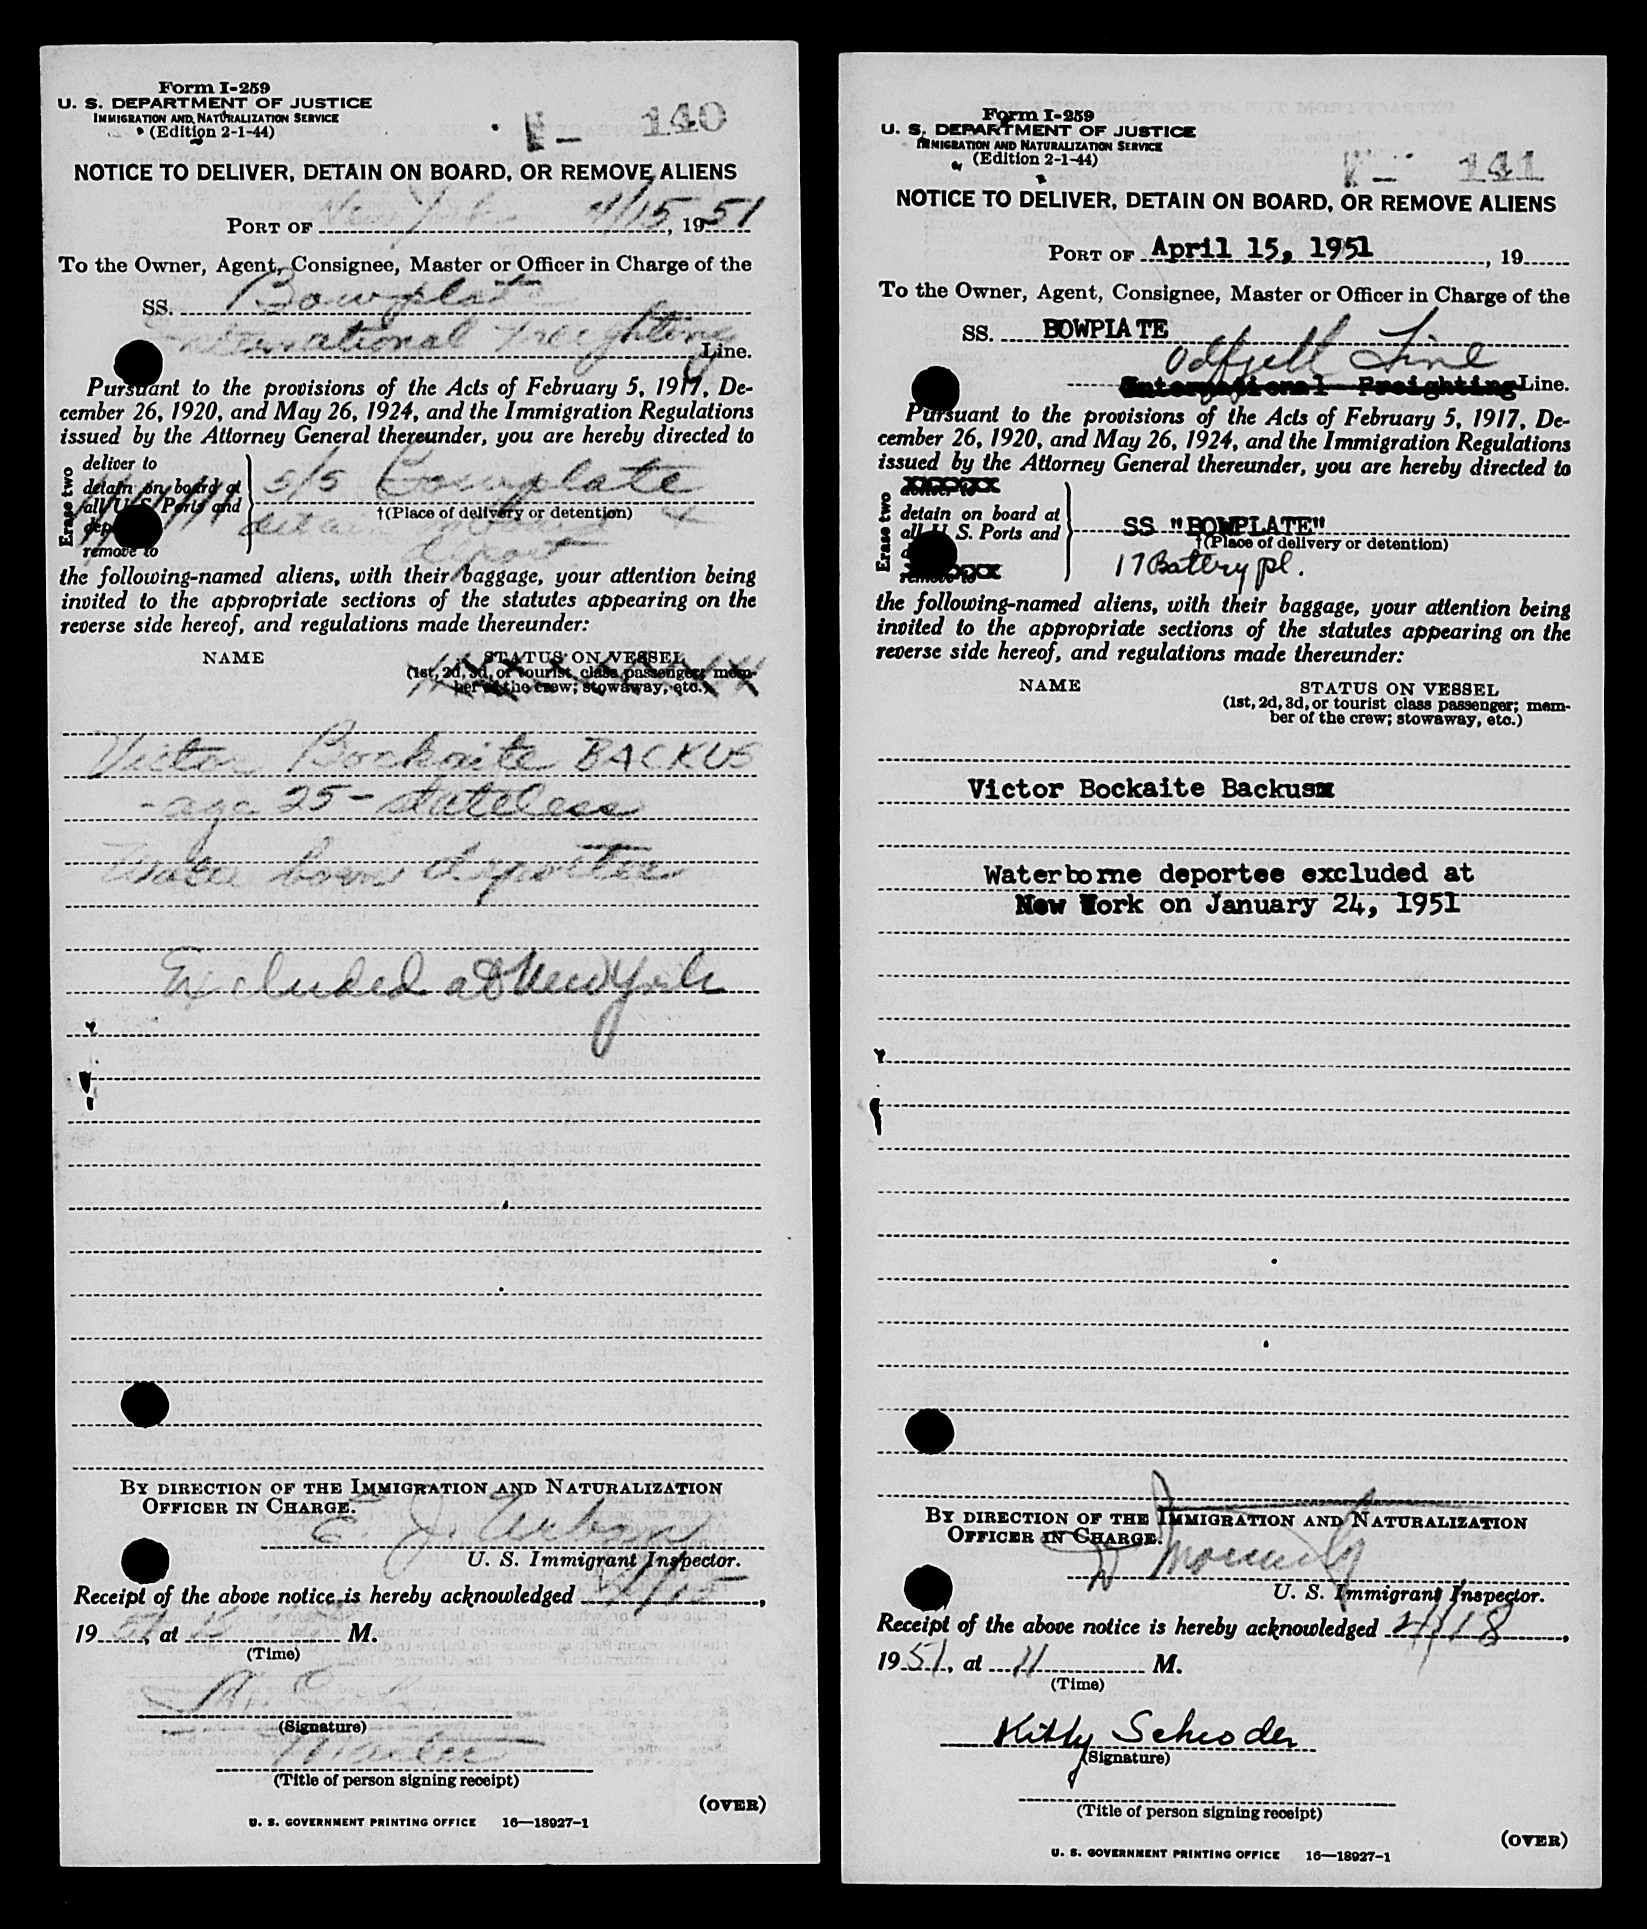 Form I-259
U. S. DEPARTMENT OF JUSTICE
IMMIGRATION AND NATURALIZATION SERVICE
(Edition 2-1-44)
140
NOTICE TO DELIVER, DETAIN ON BOARD, OR REMOVE ALIENS
PORT OF New York 4/15, 1951
To the Owner, Agent, Consignee, Master or Officer in Charge of the
SS. Bowplate
International Freighting Line.
Pursuant to the provisions of the Acts of February 5, 1917, De-
cember 26, 1920, and May 26, 1924, and the Immigration Regulations
issued by the Attorney General thereunder, you are hereby directed to
Erase two
deliver to
detain on board at
all U. S. Ports and
remove to
s/s Bowplate
†(Place of delivery or detention)
detain on board &
deport
the following-named aliens, with their baggage, your attention being
invited to the appropriate sections of the statutes appearing on the
reverse side hereof, and regulations made thereunder:
NAME
STATUS ON VESSEL
(1st, 2d, 3d, or tourist class passenger; mem-
ber of the crew; stowaway, etc.)
Victor Bockaite BACKUS
- age 25 - stateless
Water born deportee
Excluded at New York
BY DIRECTION OF THE IMMIGRATION AND NATURALIZATION
OFFICER IN CHARGE.
E. J.
U. S. Immigrant Inspector.
Receipt of the above notice is hereby acknowledged 4/15,
19 51, at M.
(Time)
(Signature)
Master
(Title of person signing receipt)
(OVER)
U. S. GOVERNMENT PRINTING OFFICE 16—18927-1
Form I-259
U. S. DEPARTMENT OF JUSTICE
IMMIGRATION AND NATURALIZATION SERVICE
(Edition 2-1-44)
141
NOTICE TO DELIVER, DETAIN ON BOARD, OR REMOVE ALIENS
PORT OF April 15, 1951, 19
To the Owner, Agent, Consignee, Master or Officer in Charge of the
SS. BOWPLATE
Odfjell Line
International Freighting Line.
Pursuant to the provisions of the Acts of February 5, 1917, De-
cember 26, 1920, and May 26, 1924, and the Immigration Regulations
issued by the Attorney General thereunder, you are hereby directed to
Erase two
deliver to
detain on board at
all U. S. Ports and
remove to
SS "BOWPLATE"
†(Place of delivery or detention)
17 Battery pl.
the following-named aliens, with their baggage, your attention being
invited to the appropriate sections of the statutes appearing on the
reverse side hereof, and regulations made thereunder:
NAME
STATUS ON VESSEL
(1st, 2d, 3d, or tourist class passenger; mem-
ber of the crew; stowaway, etc.)
Victor Bockaite Backus
Waterborne deportee excluded at
New York on January 24, 1951
BY DIRECTION OF THE IMMIGRATION AND NATURALIZATION
OFFICER IN CHARGE.
U. S. Immigrant Inspector.
Receipt of the above notice is hereby acknowledged 4/18,
19 51, at 11 M.
(Time)
Kitty Schroder
(Signature)
(Title of person signing receipt)
(OVER)
U. S. GOVERNMENT PRINTING OFFICE 16—18927-1